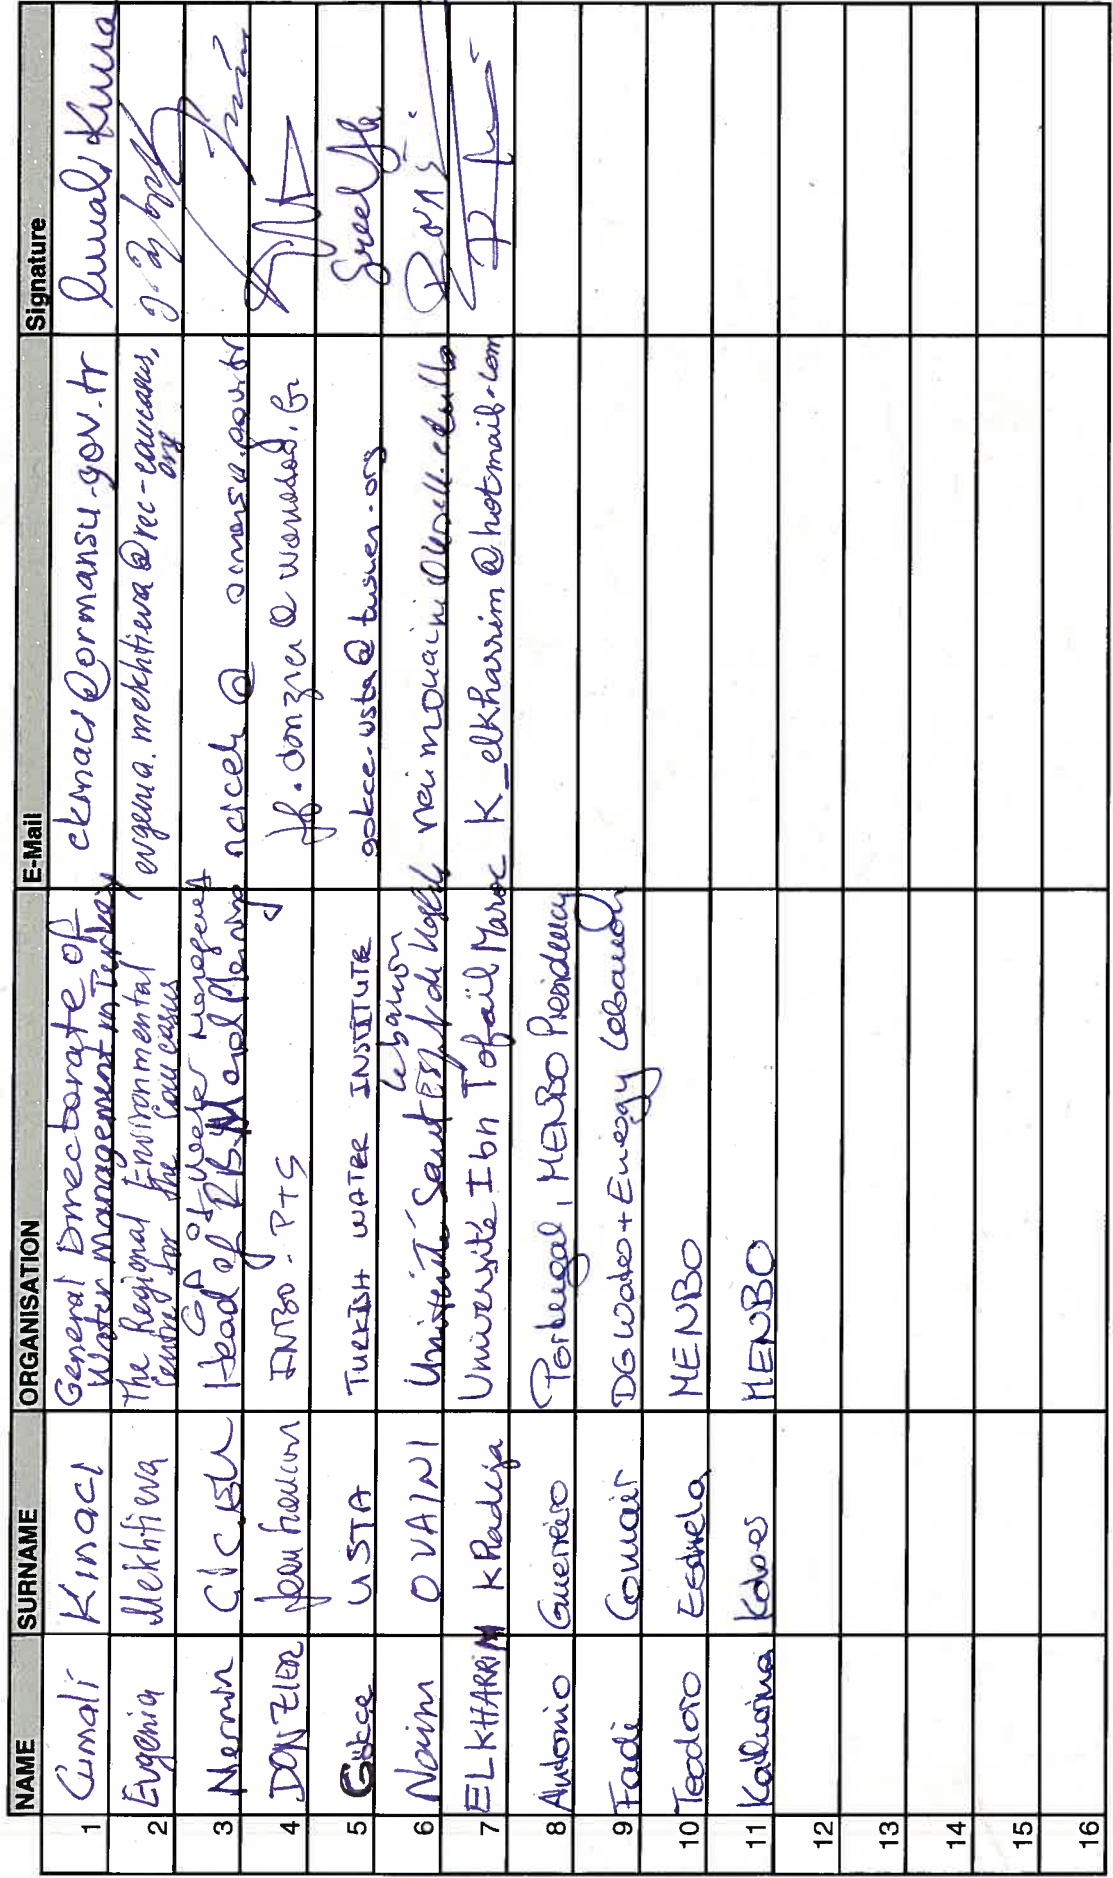 NAME SURNAME ORGANISATION E-Mail Signature
1 Cumali Kınacı General Directorate of
Water Management in Turkey ckinaci@ormansu.gov.tr
2 Evgenia Mekhtieva The Regional Environmental
Centre for the Caucasus evgenia.mekhtieva@rec-caucasus.
org
3 Nermin ÇİÇEK GD of Water Management
Head of RBM and Planning ncicek@ormansu.gov.tr
4 DONZIER Jean François INBO - PTS jf.donzier@wanadoo.fr
5 Gökçe USTA TURKISH WATER INSTITUTE gokce.usta@tusuen.org
6 Naim OUAINI Lebanon
Université Saint Esprit de Kaslik naimouaini@usek.edu.lb
7 ELKHARRIM Khadija Université Ibn Tofaïl Maroc K_elkharrim@hotmail.com
8 Antonio Guerreiro Portugal, MENBO Presidency
9 Fadi Comair DG Water + Energy Lebanon
10 Teodoro Estrela MENBO
11 Katherina MENBO
12
13
14
15
16